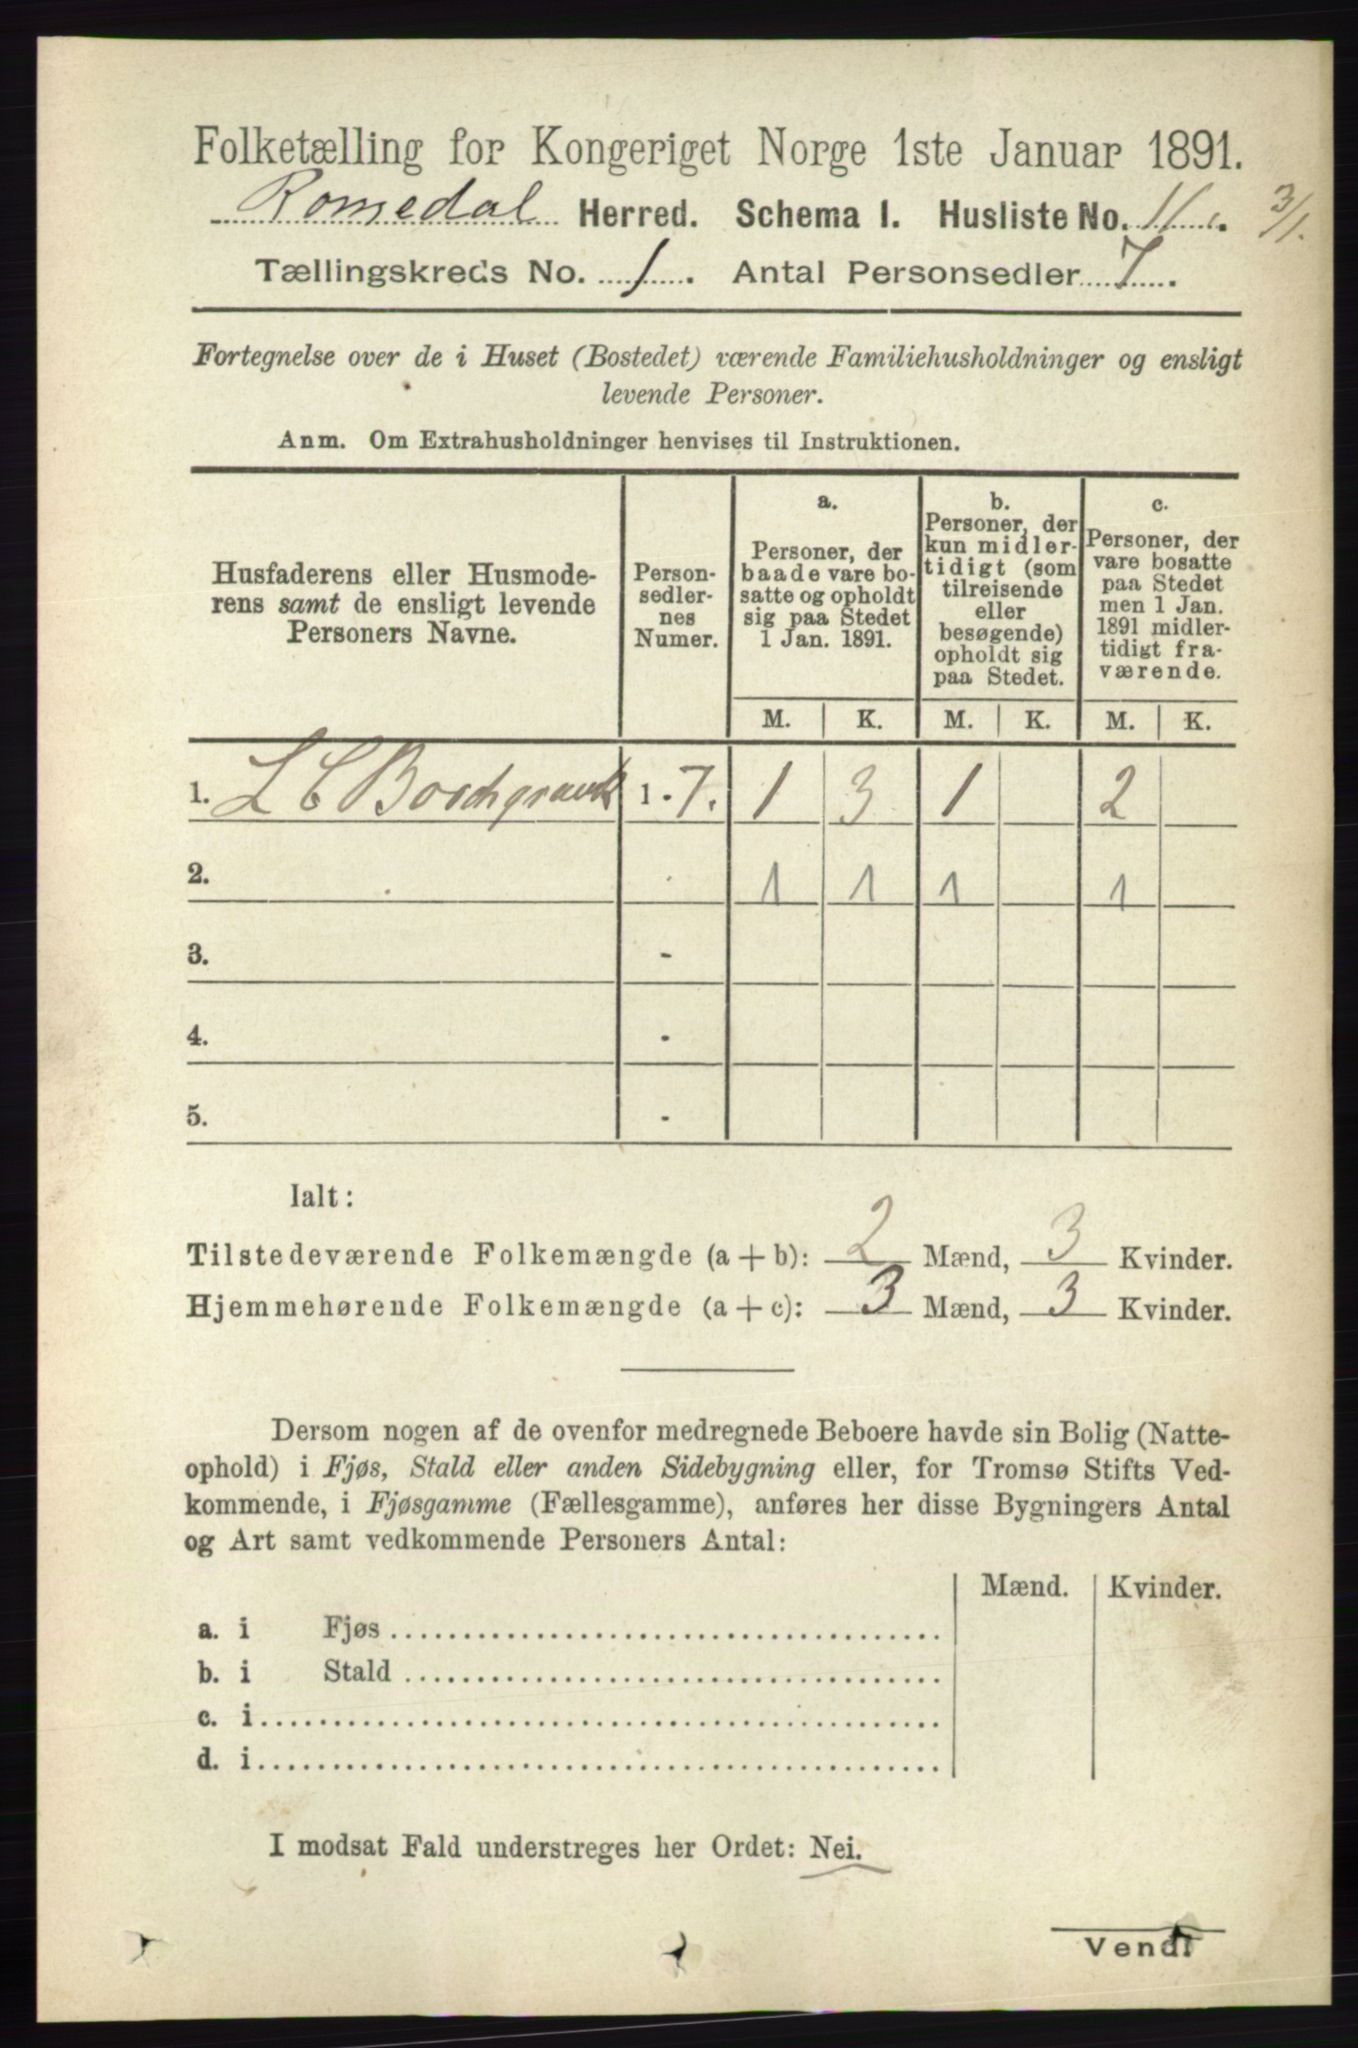 Folketælling for Kongeriget Norge 1ste Januar 1891.
Romedal Herred. Schema I. Husliste No. 11. 3/1.
Tællingskreds No. 1. Antal Personsedler 7.
Fortegnelse over de i Huset (Bostedet) værende Familiehusholdninger og ensligt
levende Personer.
Anm. Om Extrahusholdninger henvises til Instruktionen.
Husfaderens eller Husmode-
rens samt de ensligt levende
Personers Navne.
Person-
sedler-
nes
Numer.
a.
Personer, der
baade vare bo-
satte og opholdt
sig paa Stedet
1 Jan. 1891.
b.
Personer, der
kun midler-
tidigt (som
tilreisende
eller
besøgende)
opholdt sig
paa Stedet.
c.
Personer, der
vare bosatte
paa Stedet
men 1 Jan.
1891 midler-
tidigt fra-
værende.
M. K. M. K. M. K.
1. L C 1.-7. 1 3 1 2
2. - 1 1 1 1
3. -
4. -
5. -
Ialt:
Tilstedeværende Folkemængde (a + b): 2 Mænd, 3 Kvinder.
Hjemmehørende Folkemængde (a + c): 3 Mænd, 3 Kvinder.
Dersom nogen af de ovenfor medregnede Beboere havde sin Bolig (Natte-
ophold) i Fjøs, Stald eller anden Sidebygning eller, for Tromsø Stifts Ved-
kommende, i Fjøsgamme (Fællesgamme), anføres her disse Bygningers Antal
og Art samt vedkommende Personers Antal:
Mænd. Kvinder.
a. i Fjøs
b. i Stald
c. i
d. i
I modsat Fald understreges her Ordet: Nei.
Vend!